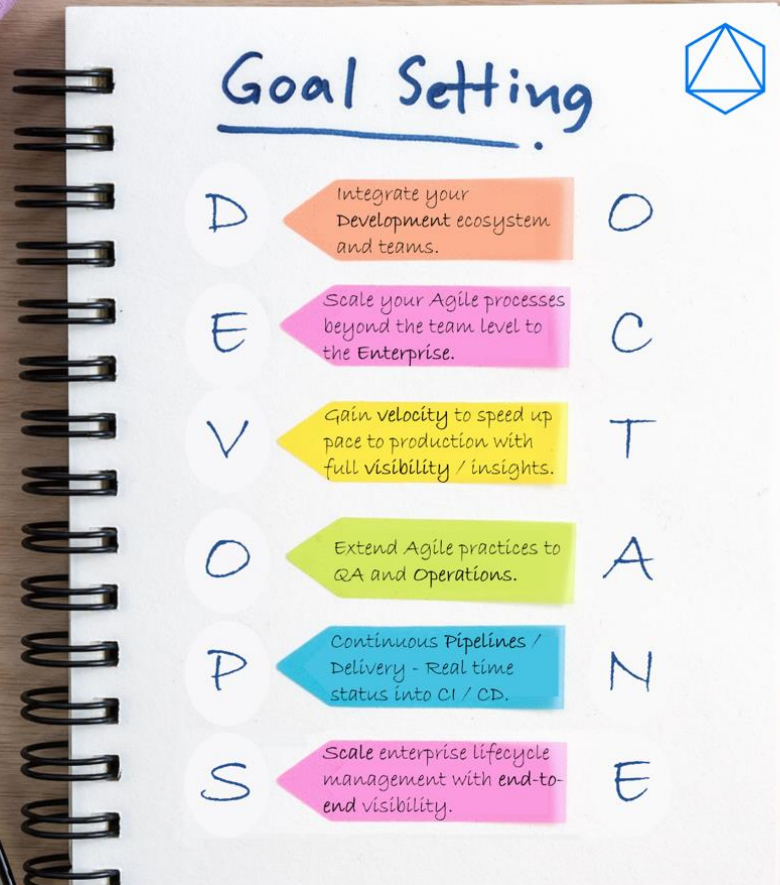 Goal Setting
D
Integrate your
Development ecosystem
and teams.
O
E
Scale your Agile processes
beyond the team level to
the Enterprise.
C
V
Gain velocity to speed up
pace to production with
full visibility / insights.
T
O
Extend Agile practices to
QA and Operations.
A
P
Continuous Pipelines /
Delivery - Real time
status into CI / CD.
N
S
Scale enterprise lifecycle
management with end-to-
end visibility.
E